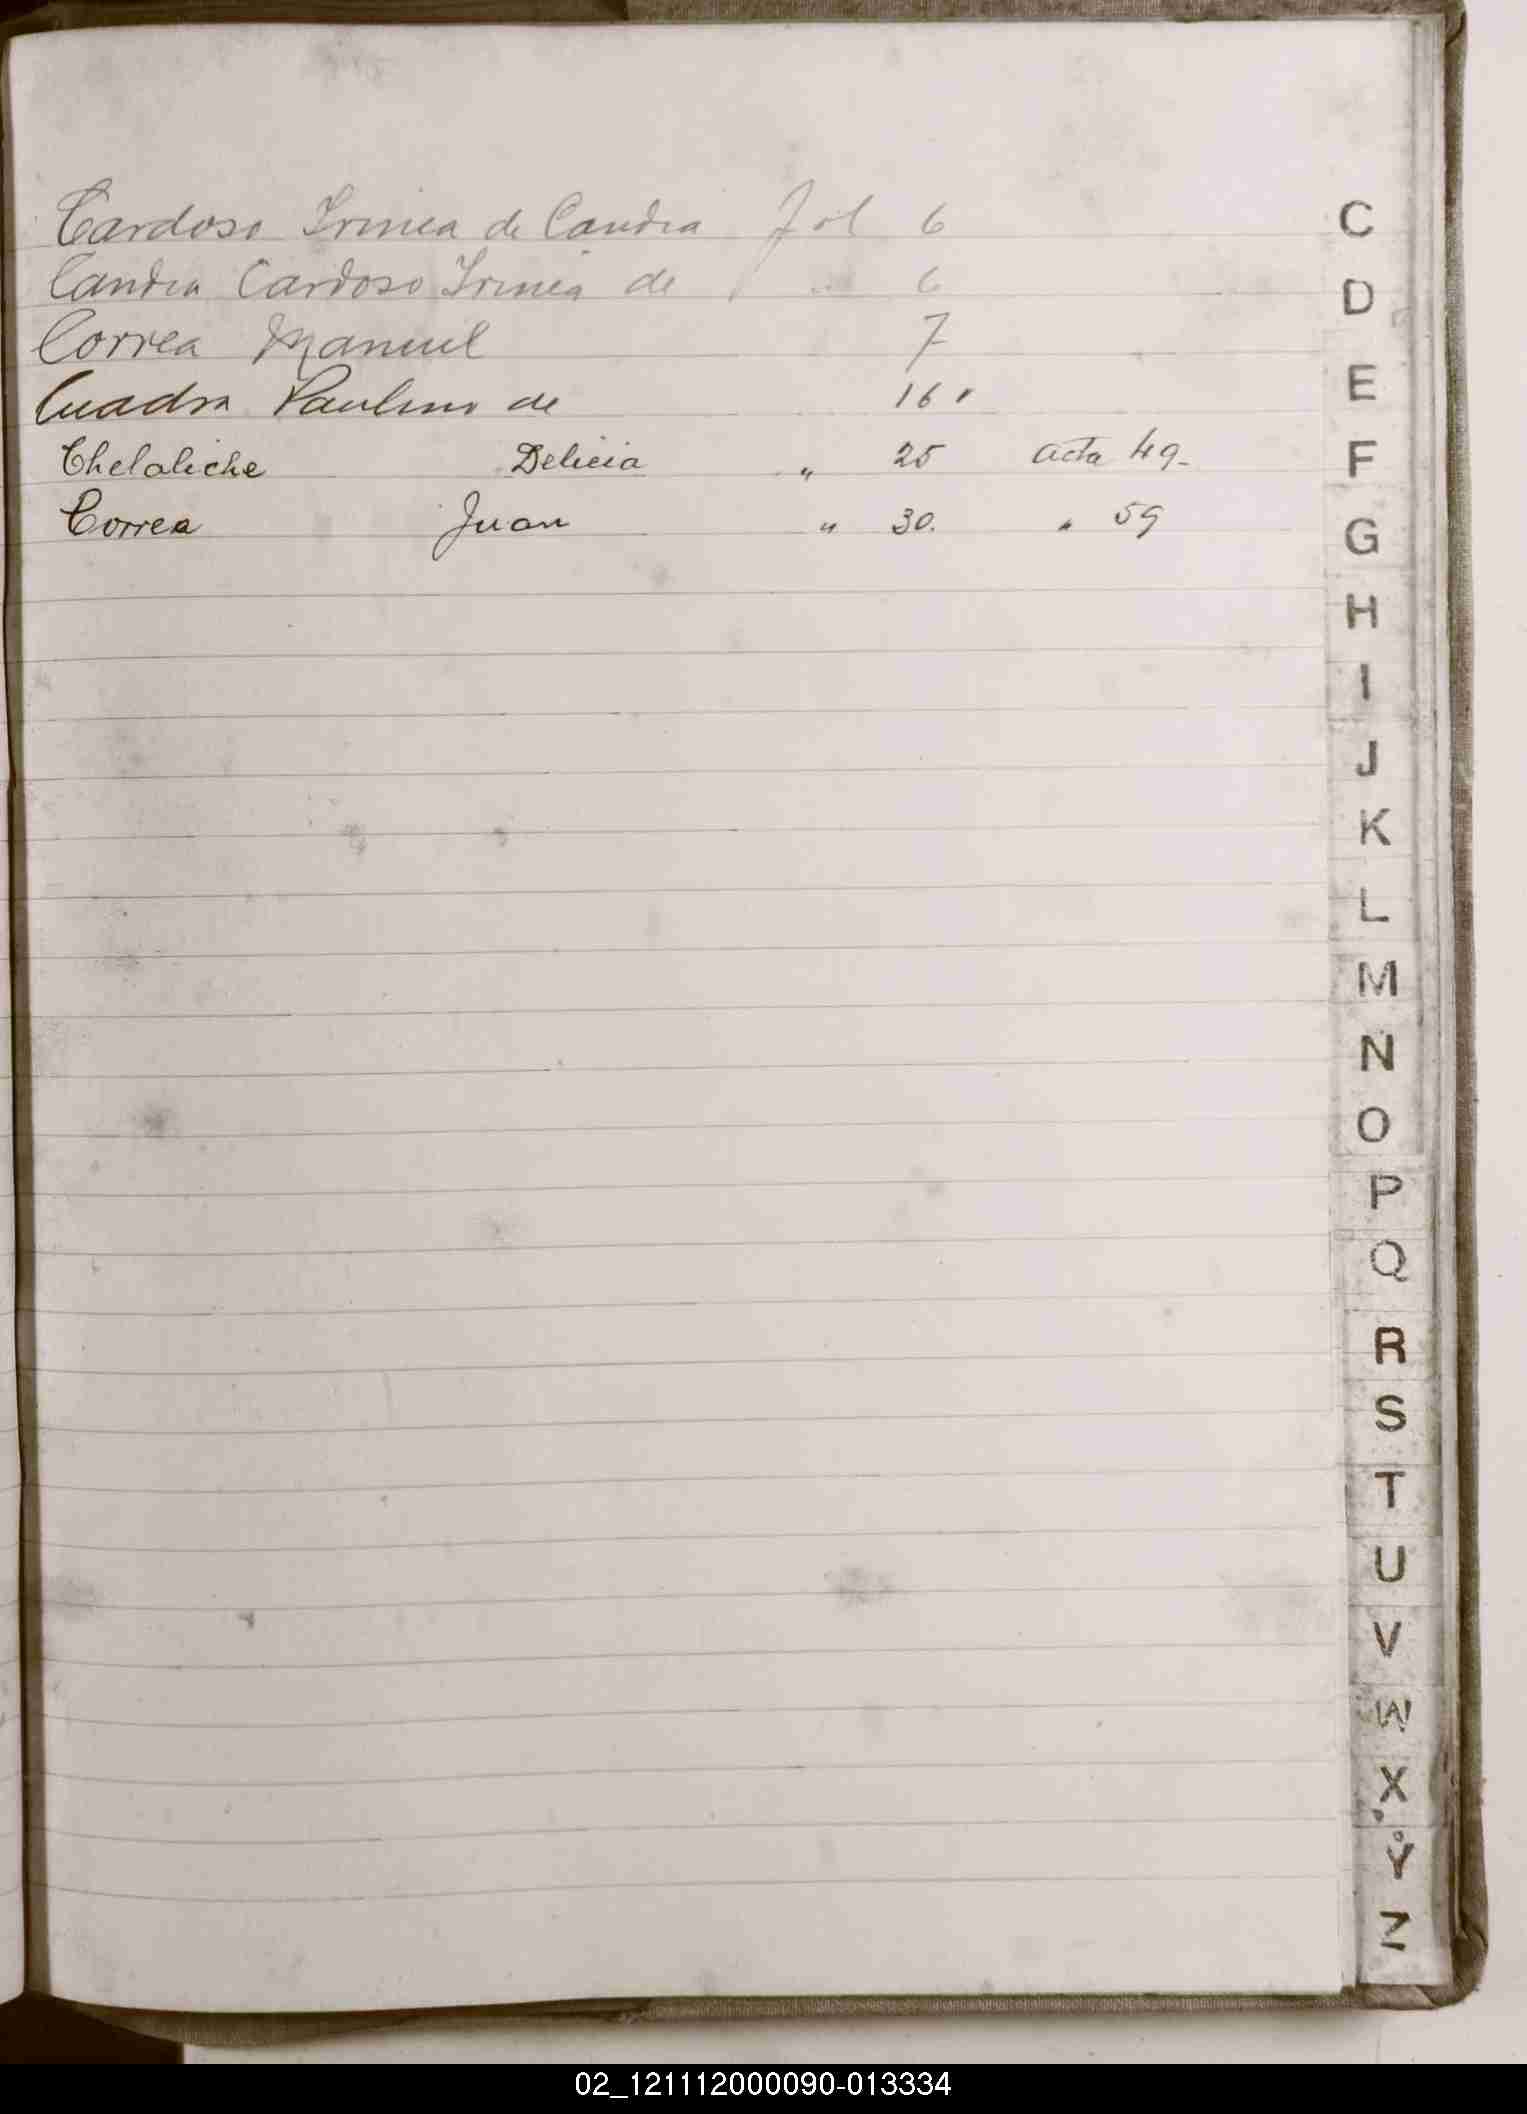 Cardoso Irinea de Candia Fol 6
Candia Cardoso Irinea de " 6
Correa Manuel 7
Cuadra Paulino de 16 "
Chelaliche Delicia " 25 acta 49-
Correa Juan " 30. " 59
C
D
E
F
G
H
I
J
K
L
M
N
O
P
Q
R
S
T
U
V
W
X
Y
Z
02_121112000090-013334